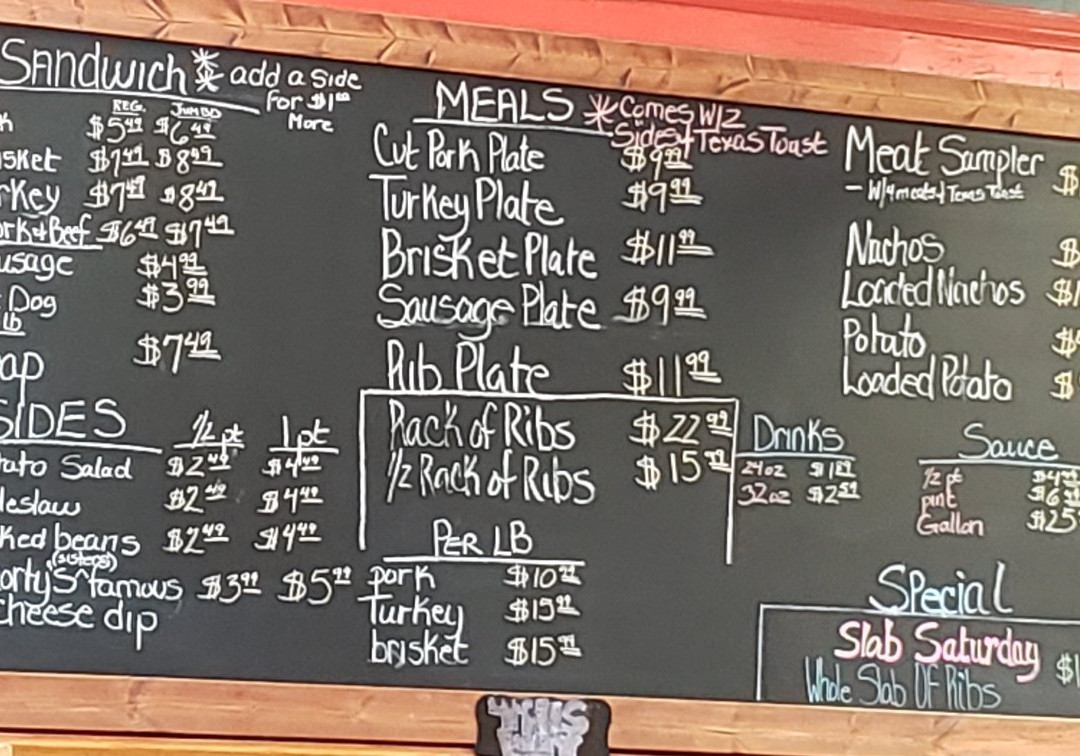 SANDWICH * add a side
For $1.00 More
REG. JUMBO
$5.49 $6.49
sket $7.49 $8.49
rkey $7.49 $8.49
ork & Beef $6.49 $7.49
usage $4.99
Dog $3.99
lb
ap $7.49
SIDES 1/2 pt 1 pt
tato Salad $2.49 $4.49
leslaw $2.49 $4.49
ked beans $2.49 $4.49
(sisters)
orty's ^ famous $3.99 $5.99
cheese dip
MEALS * Comes W/2
Sides & Texas Toast
Cut Pork Plate $9.99
Turkey Plate $9.99
Brisket Plate $11.99
Sausage Plate $9.99
Rib Plate $11.99
Rack of Ribs $22.99
1/2 Rack of Ribs $15.99
PER LB
pork $10.99
Turkey $15.99
brisket $15.99
Meat Sampler $
- W/4 meats & Texas Toast
Nachos $
Loaded Nachos $
Potato $
Loaded Potato $
Drinks
24oz
32oz $2.59
Sauce
1/2 pt
pint
Gallon $25
Special
Slab Saturday $
Whole Slab OF Ribs